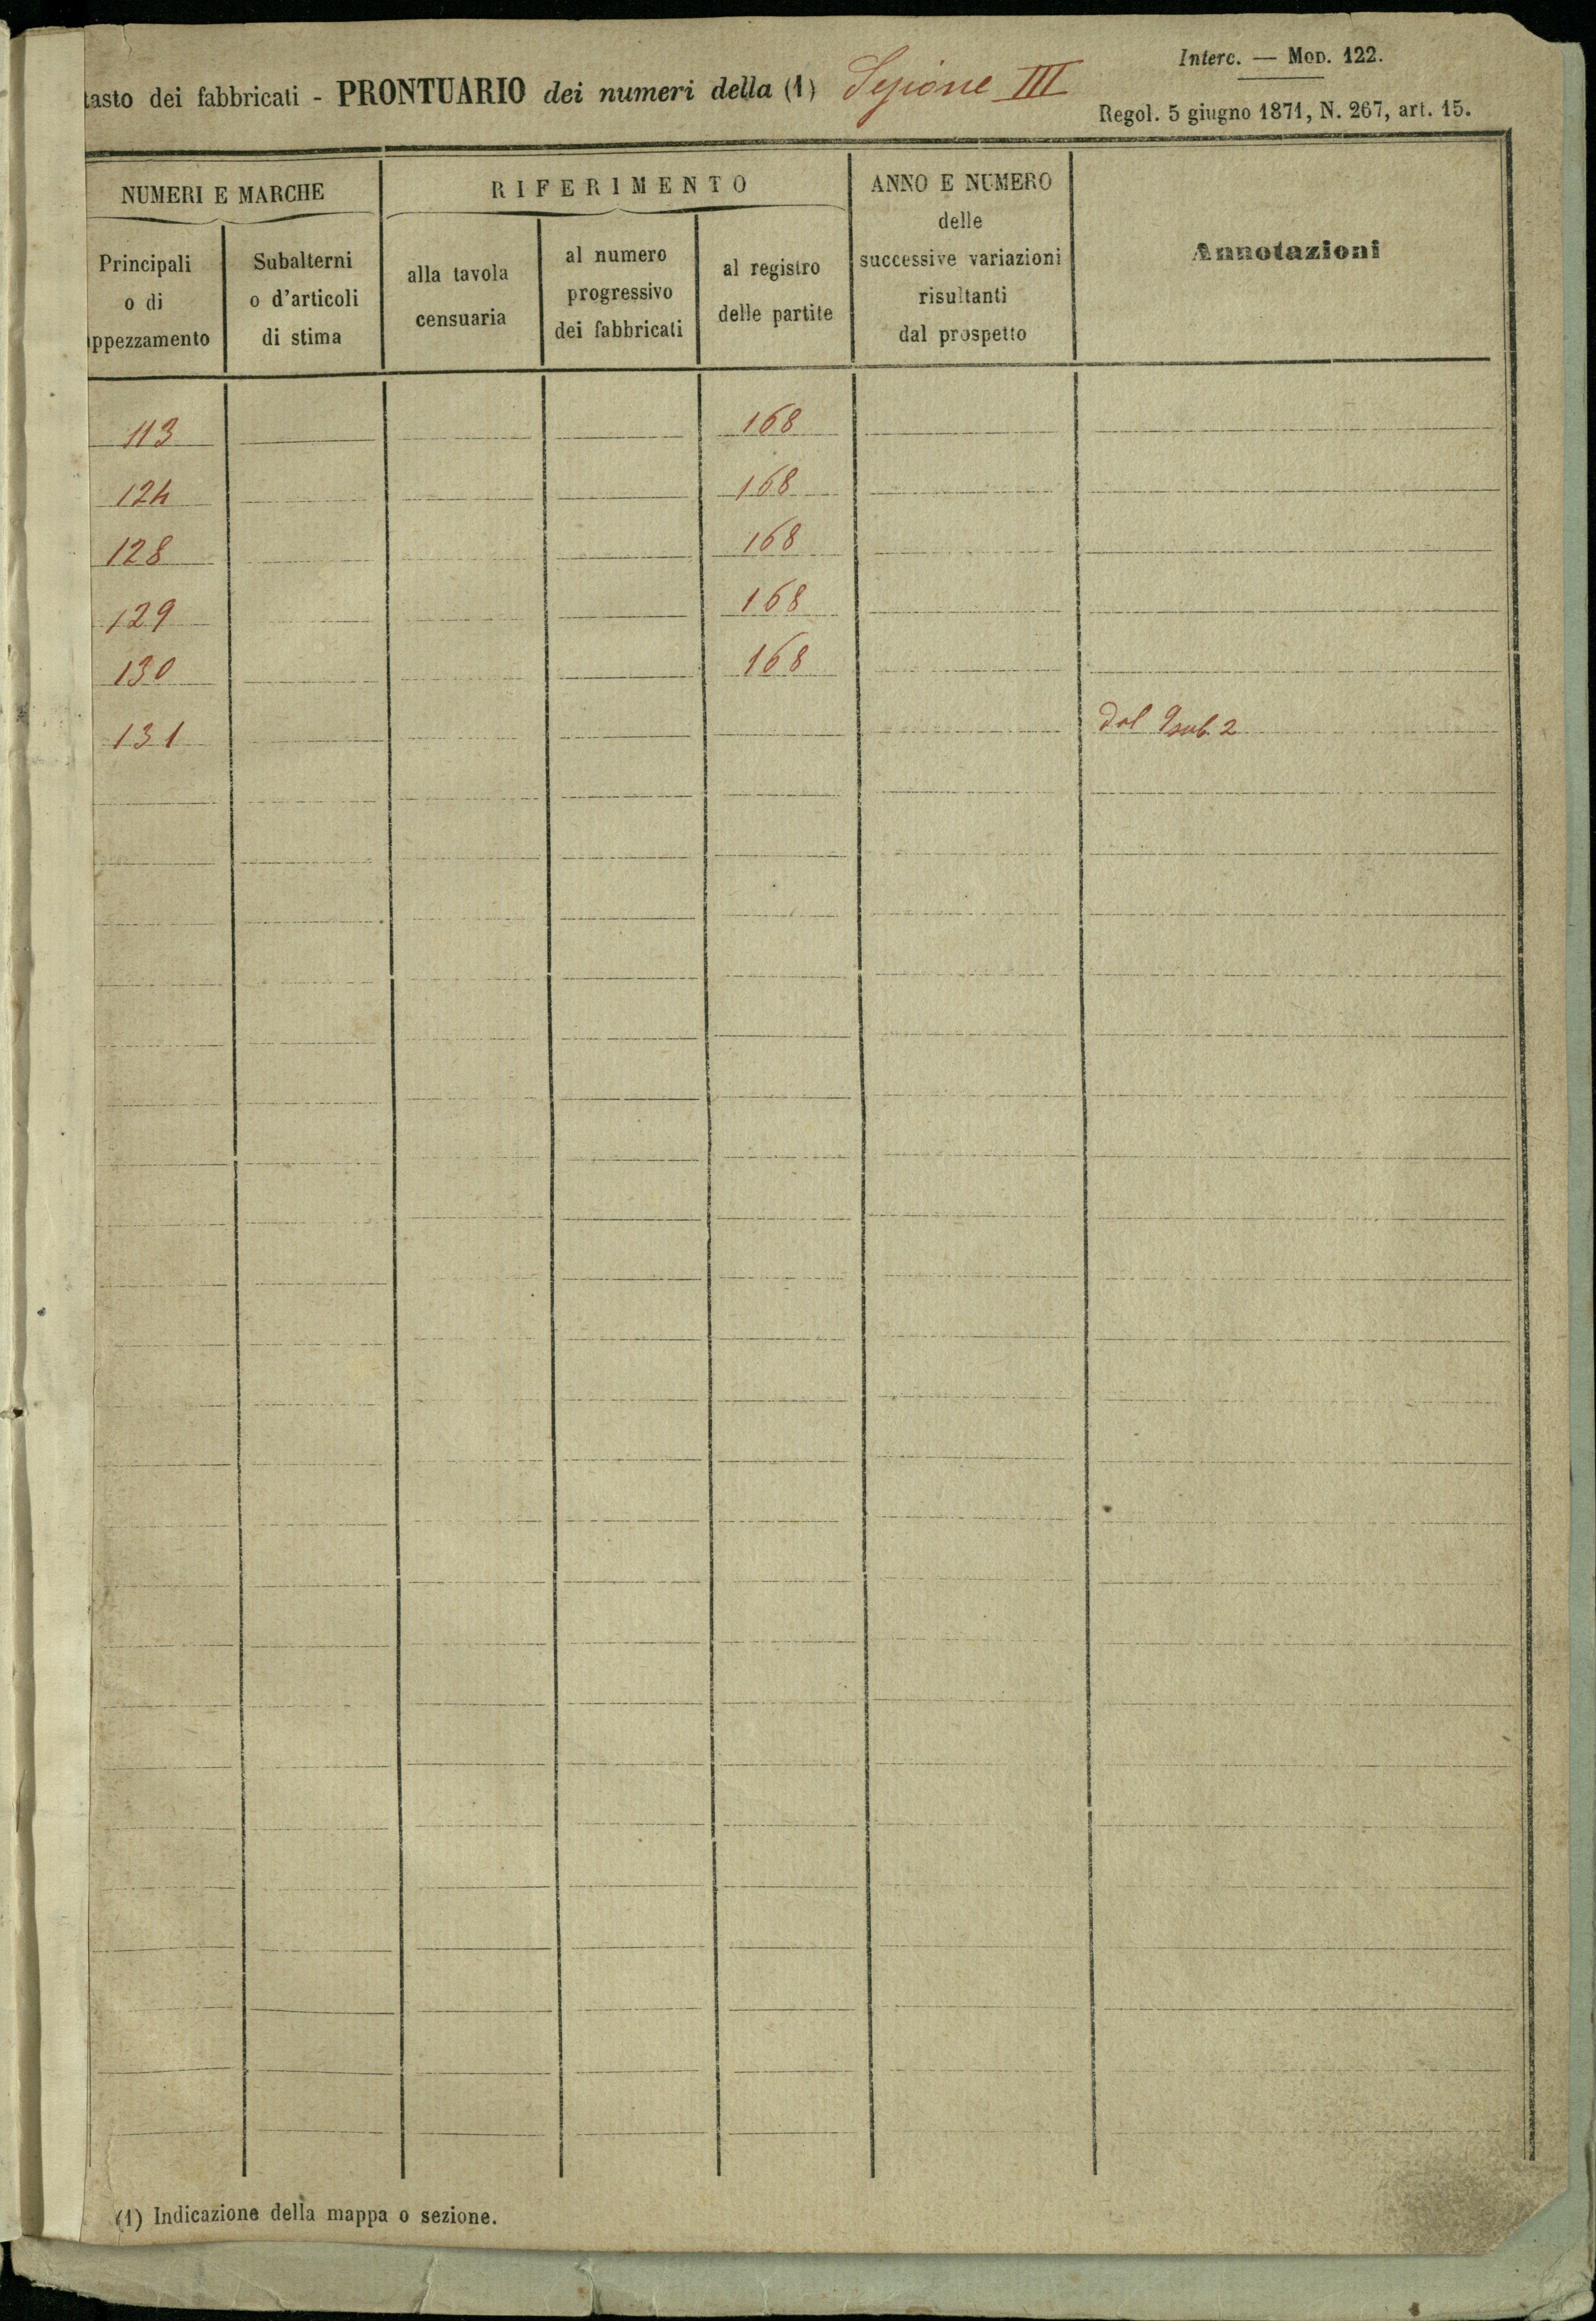 Interc. — Mod. 122.
tasto dei fabbricati - PRONTUARIO dei numeri della (1) Sezione III
Regol. 5 giugno 1871, N. 267, art. 15.
NUMERI E MARCHE
RIFERIMENTO
ANNO E NUMERO
delle
successive variazioni
risultanti
dal prospetto
Annotazioni
Principali
o di
ppezzamento
Subalterni
o d'articoli
di stima
alla tavola
censuaria
al numero
progressivo
dei fabbricati
al registro
delle partite
113 168
124 168
128 168
129 168
130 168
131 dal 9 sub. 2
(1) Indicazione della mappa o sezione.